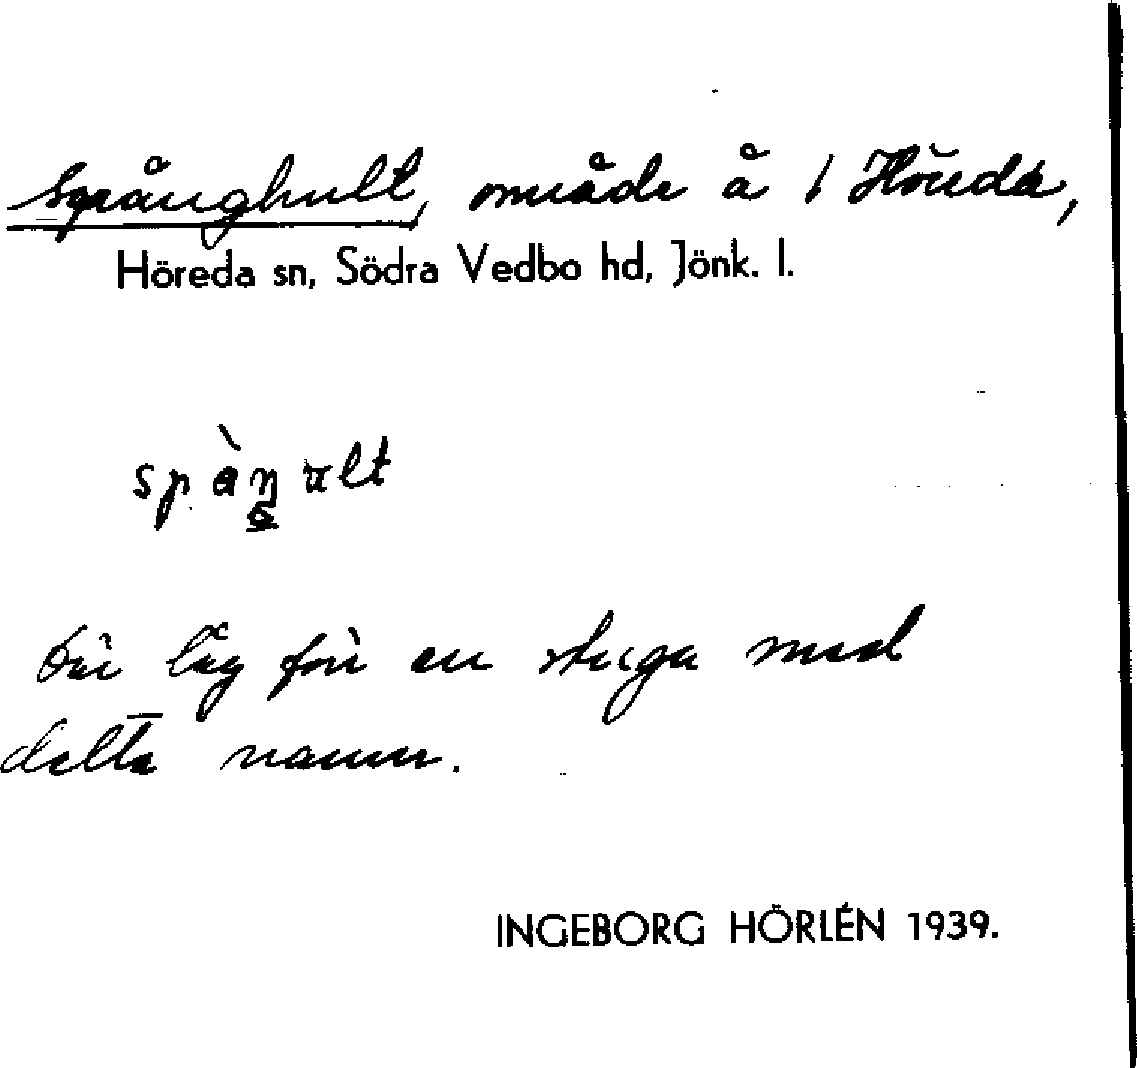 Språnghult, område å 1 Höreda,
Höreda sn, Södra Vedbo hd, Jönk. l.
Där låg förr en stuga med
detta namn.
INGEBORG HÖRLÉN 1939.